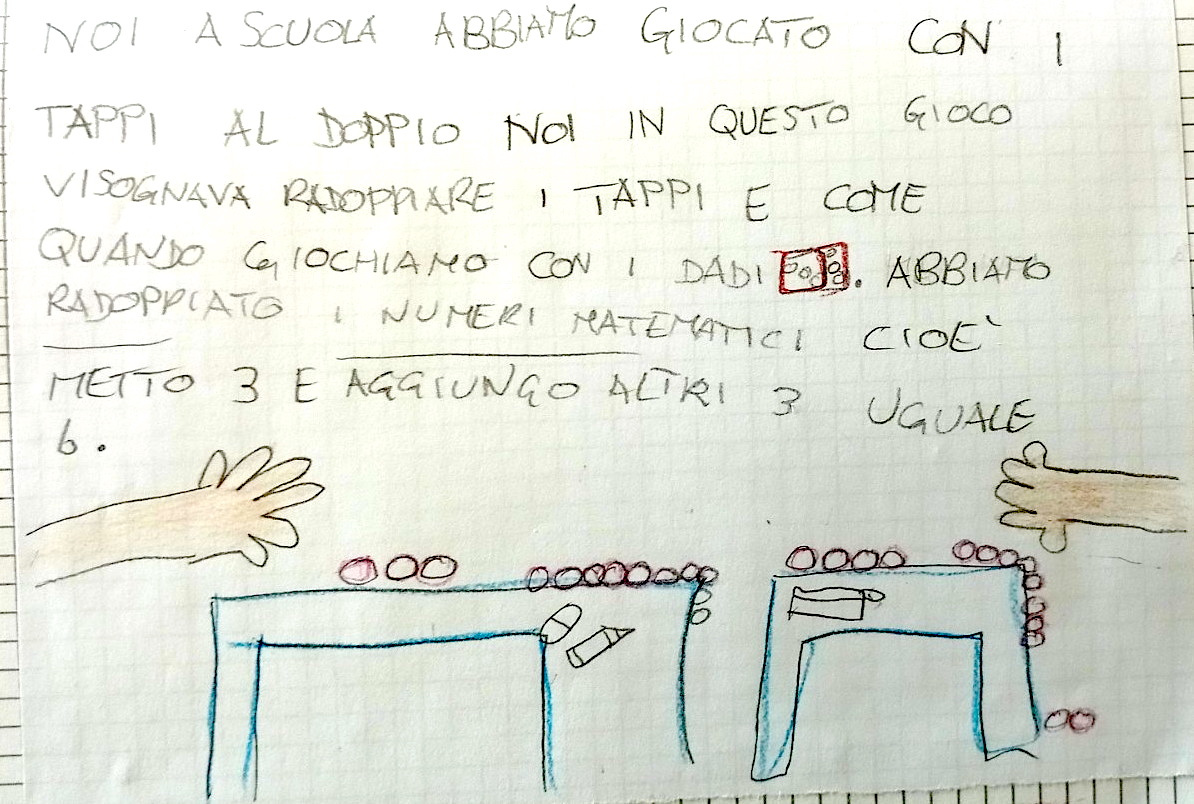 NOI A SCUOLA ABBIAMO GIOCATO CON I
TAPPI AL DOPPIO NOI IN QUESTO GIOCO
VISOGNAVA RADOPPIARE I TAPPI E COME
QUANDO GIOCHIAMO CON I DADI . ABBIAMO
RADOPPIATO I NUMERI MATEMATICI CIOE'
METTO 3 E AGGIUNGO ALTRI 3 UGUALE
6.